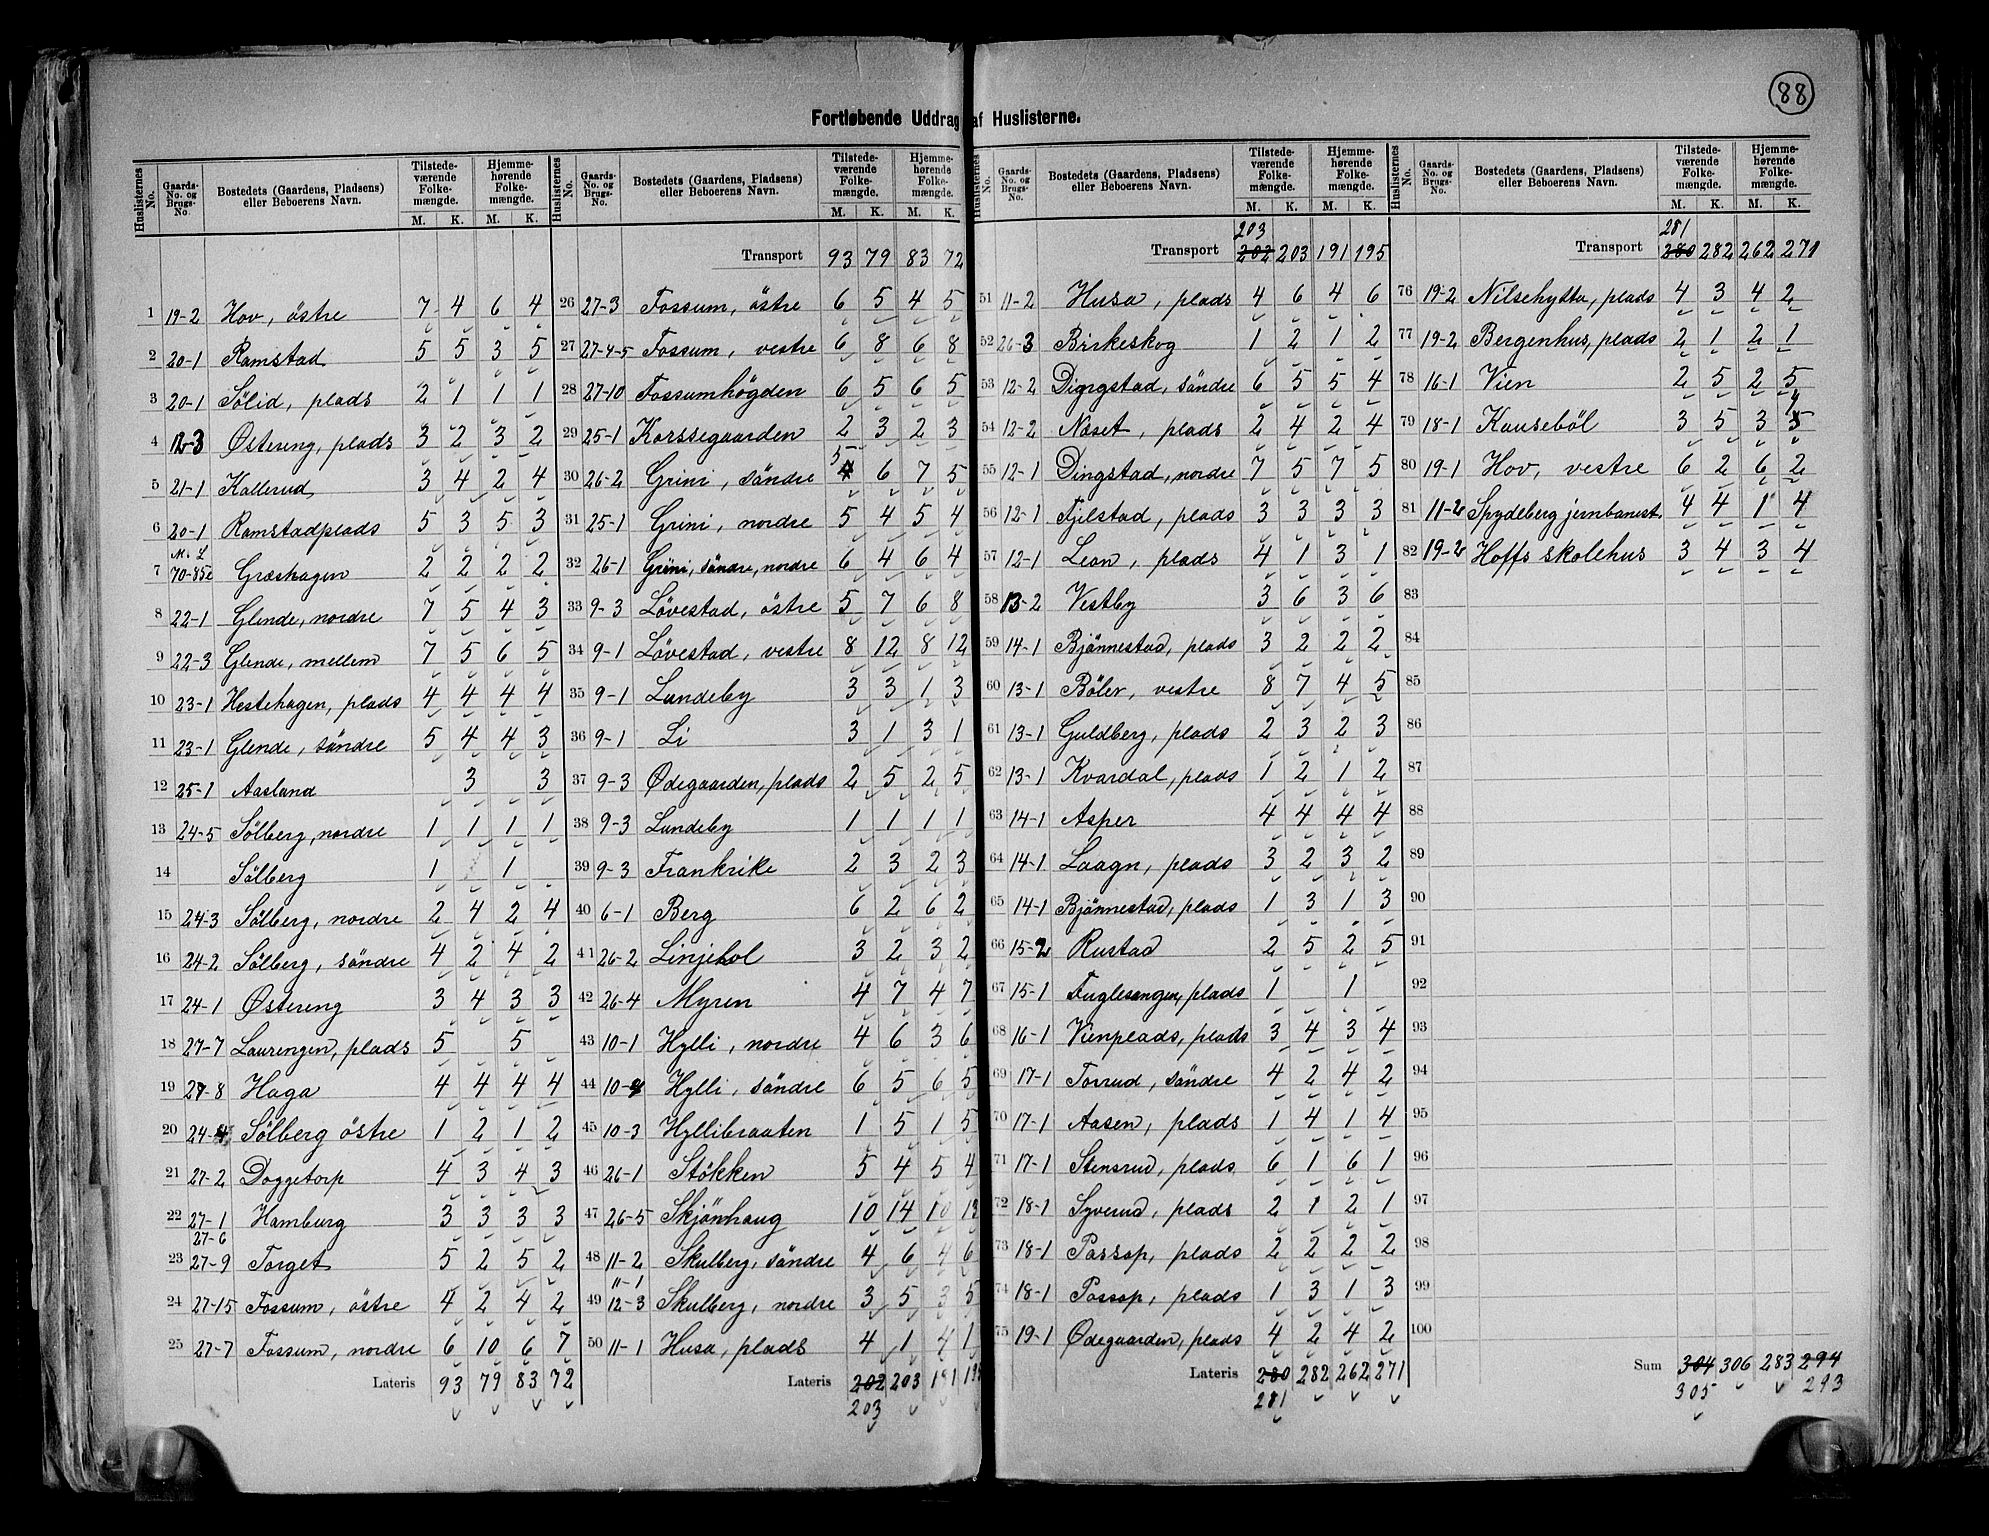 88
Fortløbende Uddrag af Huslisterne.
Huslisternes No. Gaards-No. og Brugs-No. Bostedets (Gaardens, Pladsens) eller Beboerens Navn. Tilstedeværende Folkemængde. M. K. Hjemmehørende Folkemængde. M. K.
1 19-2 Hov, östre 7 4 6 4
2 20-1 Ramstad 5 5 3 5
3 20-1 Sölid, plads 2 1 1 1
4 12-3 Østereng, plads 3 2 3 2
5 21-1 Kallerud 3 4 2 4
6 20-1 Ramstadplads 5 3 5 3
7 M. L 70-85c Græshagen 2 2 2 2
8 22-1 Glende, nordre 7 5 4 3
9 22-3 Glende, mellem 7 5 6 5
10 23-1 Hestehagen, plads 4 4 4 4
11 23-1 Glende, söndre 5 4 4 3
12 25-1 Aasland 3 3
13 24-5 Sölberg, nordre 1 1 1 1
14 Sölberg 1 1
15 24-3 Sölberg, nordre 2 4 2 4
16 24-2 Sölberg, söndre 4 2 4 2
17 24-1 Østereng 3 4 3 3
18 27-7 Laurengen, plads 5 5
19 27-8 Haga 4 4 4 4
20 24-4 Sölberg östre 1 2 1 2
21 27-2 Doggetorp 4 3 4 3
22 27-1 Hamburg 3 3 3 3
23 27-6 27-9 Torget 5 2 5 2
24 27-15 Fossum, östre 4 2 4 2
25 27-7 Fossum, nordre 6 10 6 7
Lateris 93 79 83 72
Huslisternes No. Gaards-No. og Brugs-No. Bostedets (Gaardens, Pladsens) eller Beboerens Navn. Tilstedeværende Folkemængde. M. K. Hjemmehørende Folkemængde. M. K.
Transport 93 79 83 72
26 27-3 Fossum, östre 6 5 4 5
27 27-4-5 Fossum, vestre 6 8 6 8
28 27-10 Fossumhögden 6 5 6 5
29 25-1 Korssegaarden 2 3 2 3
30 26-2 Grini, söndre 5 4 6 7 5
31 25-1 Grini, nordre 5 4 5 4
32 26-1 Grini, söndre, nordre 6 4 6 4
33 9-3 Lövestad, östre 5 7 6 8
34 9-1 Lövestad, vestre 8 12 8 12
35 9-1 Lundeby 3 3 1 3
36 9-1 Li 3 1 3 1
37 9-3 Ødegaarden, plads 2 5 2 5
38 9-3 Lundeby 1 1 1 1
39 9-3 Frankrike 2 3 2 3
40 6-1 Berg 6 2 6 2
41 26-2 Linjehol 3 2 3 2
42 26-4 Myren 4 7 4 7
43 10-1 Hylli, nordre 4 6 3 6
44 10- Hylli, söndre 6 5 6 5
45 10-3 Hyllibraaten 1 5 1 5
46 26-1 Stökken 5 4 5 4
47 26-5 Skjönhaug 10 14 10
48 11-2 Skulberg, söndre 4 6 4 6
49 11-1 12-3 Skulberg, nordre 3 5 3 5
50 11-1 Husa, plads 4 1 4 1
Lateris 202 203 191 195
203
Huslisternes No. Gaards-No. og Brugs-No. Bostedets (Gaardens, Pladsens) eller Beboerens Navn. Tilstedeværende Folkemængde. M. K. Hjemmehørende Folkemængde. M. K.
203
Transport 202 203 191 195
51 11-2 Husa, plads 4 6 4 6
52 26-3 Birkeskog 1 2 1 2
53 12-2 Dingstad, söndre 6 5 5 4
54 12-2 Næset, plads 2 4 2 4
55 12-1 Dingstad, nordre 7 5 7 5
56 12-1 Fjelstad, plads 3 3 3 3
57 12-1 Leon, plads 4 1 3 1
58 13-2 Vestby 3 6 3 6
59 14-1 Bjönnestad, plads 3 2 2 2
60 13-1 Böler, vestre 8 7 4 5
61 13-1 Guldberg, plads 2 3 2 3
62 13-1 Kvardal, plads 1 2 1 2
63 14-1 Asper 4 4 4 4
64 14-1 Laagn, plads 3 2 3 2
65 14-1 Bjönnestad, plads 1 3 1 3
66 15-2 Rustad 2 5 2 5
67 15-1 Fuglesangen, plads 1 1
68 16-1 Vienplads, plads 3 4 3 4
69 17-1 Torrud, söndre 4 2 4 2
70 17-1 Aasen, plads 1 4 1 4
71 17-1 Stensrud, plads 6 1 6 1
72 18-1 Syverud, plads 2 1 2 1
73 18-1 Passop, plads 2 2 2 2
74 18-1 Passop, plads 1 3 1 3
75 19-1 Ødegaarden, plads 4 2 4 2
Lateris 280 282 262 271
281
Huslisternes No. Gaards-No. og Brugs-No. Bostedets (Gaardens, Pladsens) eller Beboerens Navn. Tilstedeværende Folkemængde. M. K. Hjemmehørende Folkemængde. M. K.
281
Transport 280 282 262 271
76 19-2 Nilsehytta, plads 4 3 4 2
77 19-2 Bergenhus, plads 2 1 2 1
78 16-1 Vien 2 5 2 5
79 18-1 Kauseböl 3 5 3 4 5
80 19-1 Hov, vestre 6 2 6 2
81 11-2 Spydeberg jernbanest. 4 4 1 4
82 19-2 Hoffs skolehus 3 4 3 4
83
84
85
86
87
88
89
90
91
92
93
94
95
96
97
98
99
100
Sum 304 306 283 294
305 293